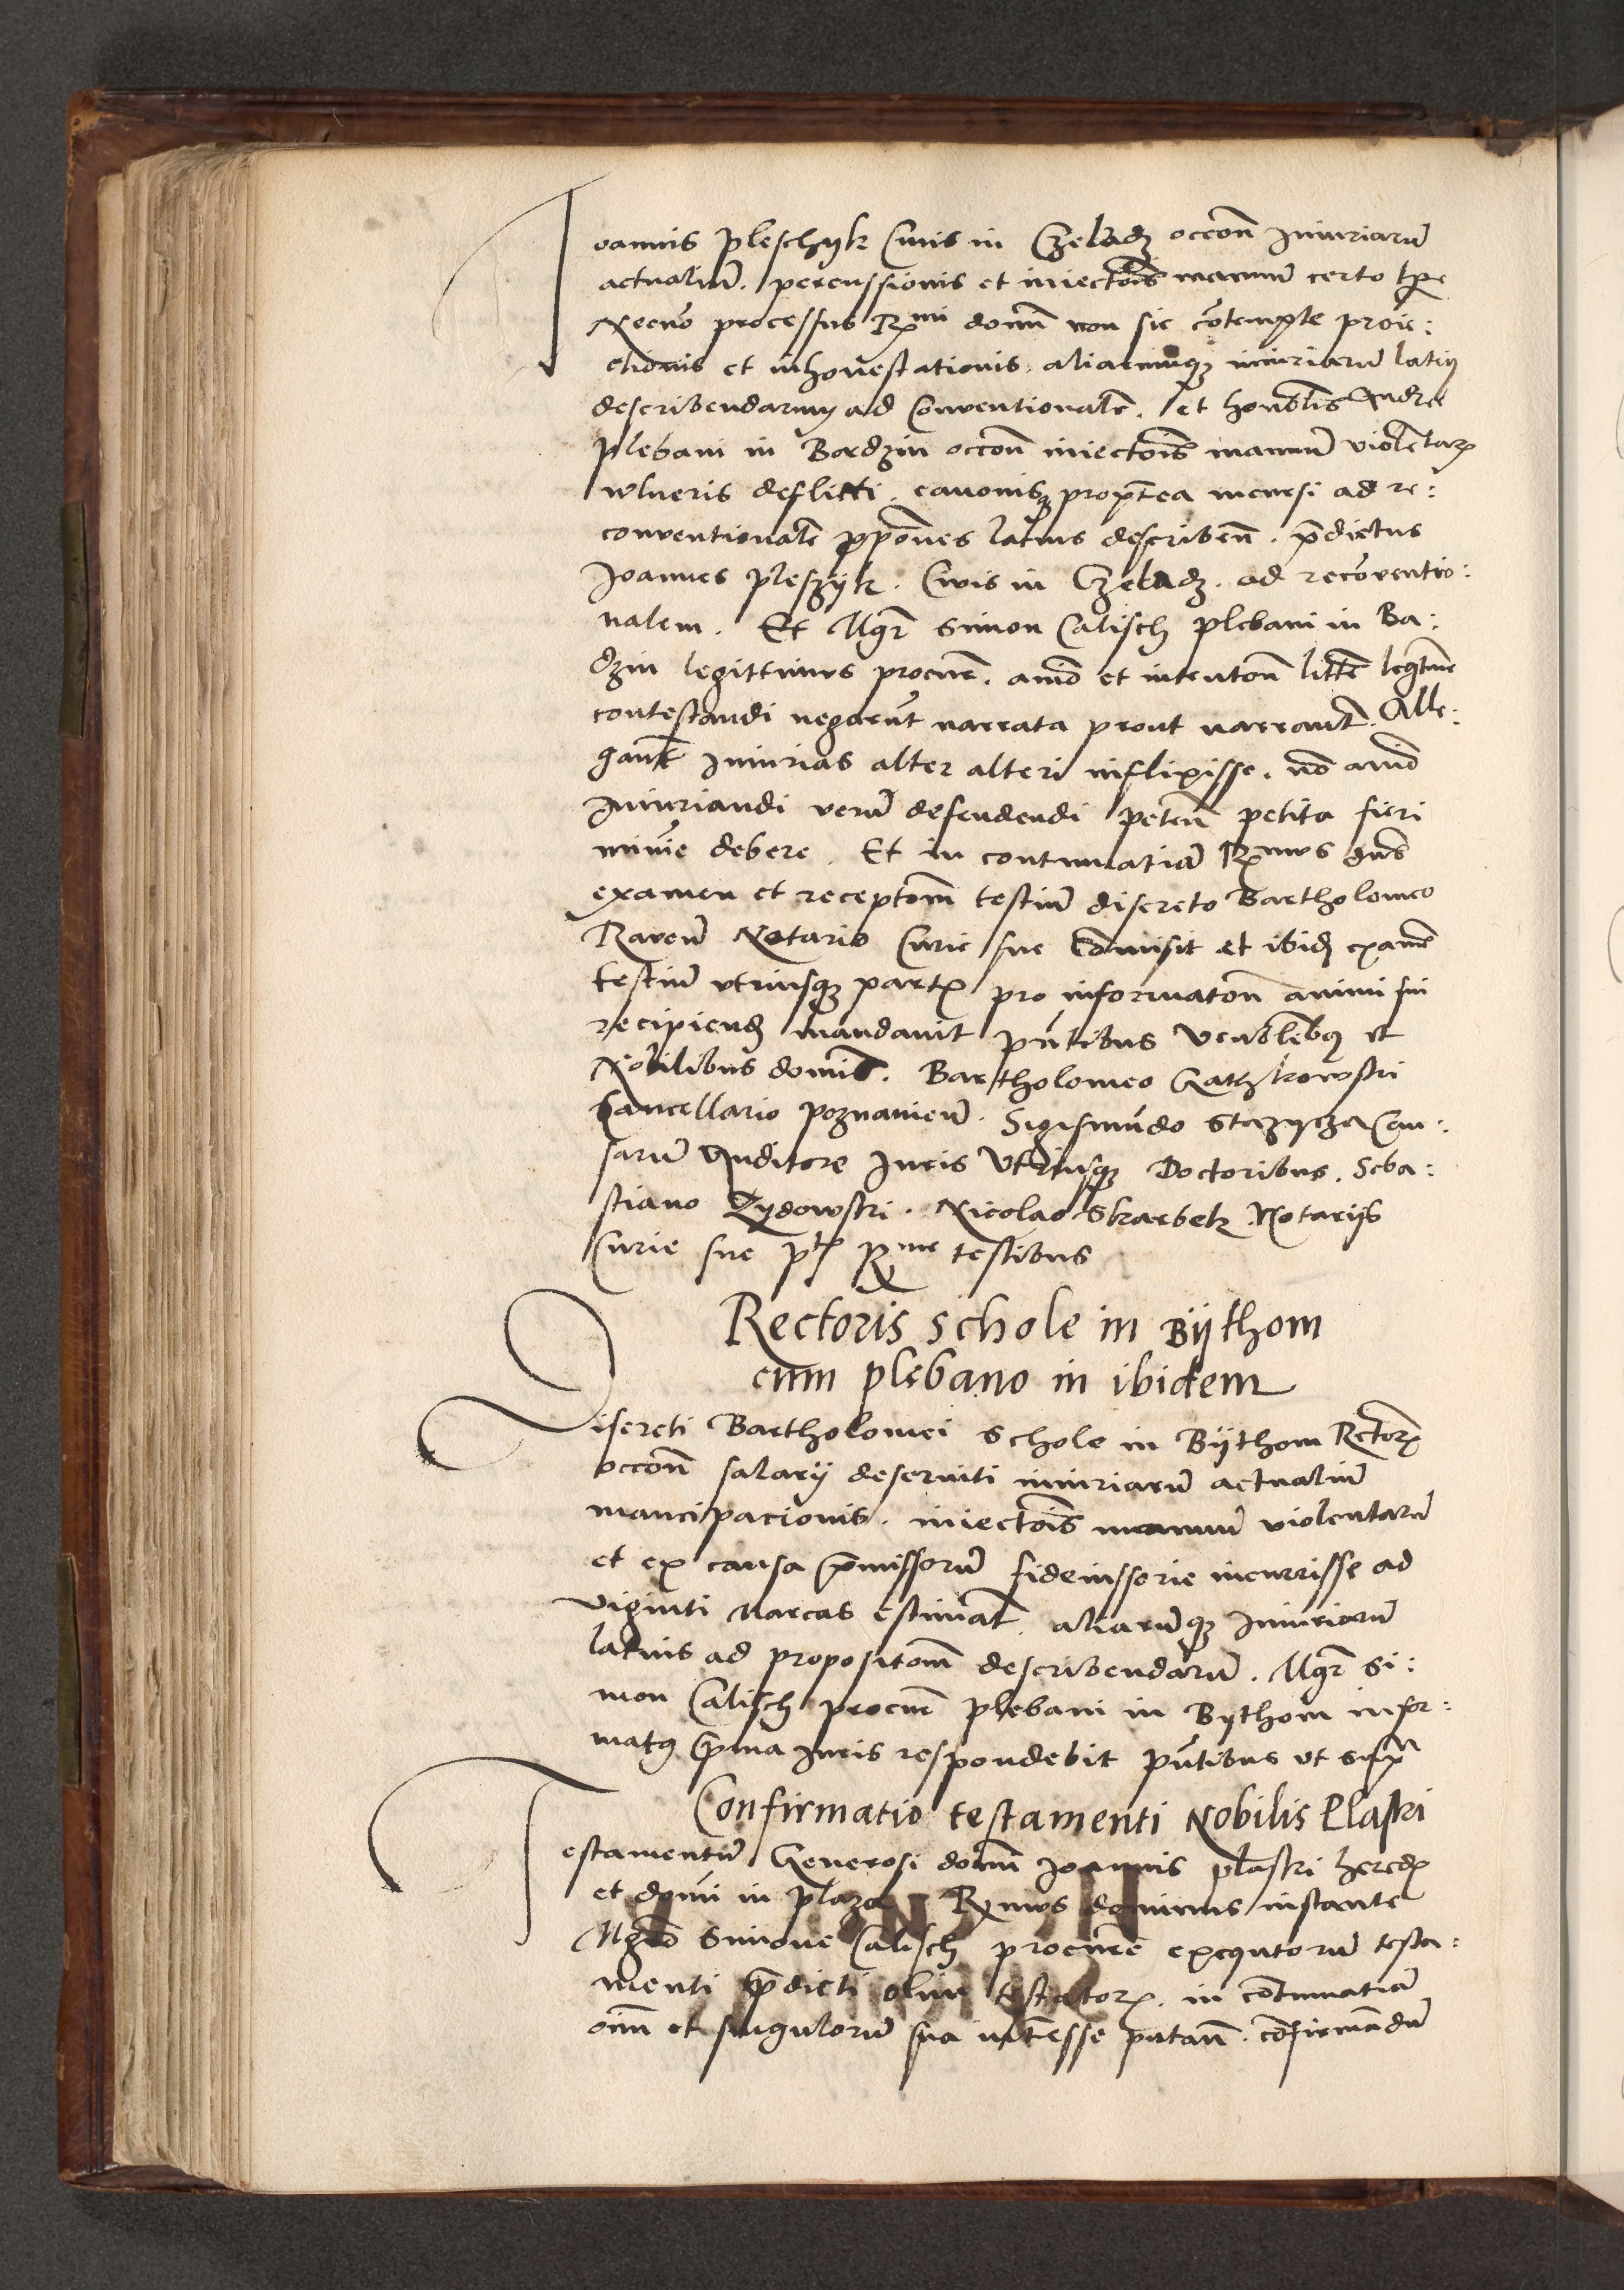 Joannis Pleschyk Civis in Czeladz occōn Iniuriarū
actualiū. percussionis et iniectōīs manuū certo tp̄e
Necnō processus Rx̄mi domī non sic cōtempte proie:
ctionis et inhonestationis. aliarumq3 iniuriarū latiꝯ
describendarum ad Conventionalē. et honoblīs Andree
plebani in Bardzin occōn iniectōīs manuū violētarꝝ
vulneris canonisq3 propterea incursi ad re:
conventionalē latius describēn. p̄dictus
Joannes pleszyk. Civis in Czeladz. ad recōventio:
nalem. Et Mgr̄ Simon Calisch plebani in Ba:
dzin legittimus procur̄. aīo et intentōn littē legitime
contestandi negarūt narrata prout narrantr̄. Alle:
gantr̄ Iniurias alter alteri inflixisse. nō aīo
Iniuriandi verū defendendi petēn petita fieri
minīe debere. Et in contumatiā Rx̄mus dn̄s
examen et receptōm testiū discreto Bartholomeo
Ravēn Notario Curie sue cōmisit et ibid examē
testiū utriusq3 partꝭ pro informatōn animi sui
recipiend mandavit pn̄tibus venēblibꝯ et
Nobilibus dominīs. Bartholomeo Gatzkowski
Cancellario poznanieñ. Sigismūdo Stezycza Cau:
sarū Auditore Iuris Utriusq3 Doctoribus. Seba:
stiano Zydowski. Nicolao Skarbek Notarijs
Curie sue Rx̄me testibus
Rectoris schole in Bÿthom
cum plebano in ibidem
Discreti Bartholomei Schole in Bÿthom Rectorꝭ
occōn salarij deserviti iniuriarū actualiū
mancipacionis. iniectōīs manuū violentarū
et ex causa p̄missorū fideiussorie incurrisse ad
viginti Marcas estimāt. aliarūq3 Iniuriarū
latius ad propositōm describendarū. Mgr̄ Si:
mon Calisch procur̄ plebani in Bythom infor:
matꝯ p̄ma Iuris respondebit pn̄tibus ut supᵃ
Confirmatio testamenti Nobilis Plaski
Testamentū Generosi domī Joannis plaski heredꝭ
et domī in plaza Rx̄mus dominus instante
Mgrō Simone Calisch procur̄e exequtorū testa:
menti p̄dicti olim testatorꝭ. in cōtumatiā
oīm et singulorū sua intesse putān. cōfirmādū